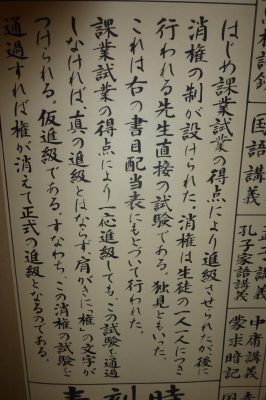 國語講義
孔子家語講義
中庸講義
蒙求暗記
はじめ課業試業の得点により進級させられたが、後に
消権の制が設けられた。消権は生徒の一人一人につき
行われる先生直接の試験である。独見ともいった。
これは右の書目配当表にもとづいて行われた。
課業試業の得点により一応進級しても、この試験を通過
しなければ、真の進級とはならず肩がきに「権」の文字が
つけられる。仮進級である。すなわち、この消権の試験を
通過すれば権が消えて正式の進級となるのである。
時刻表